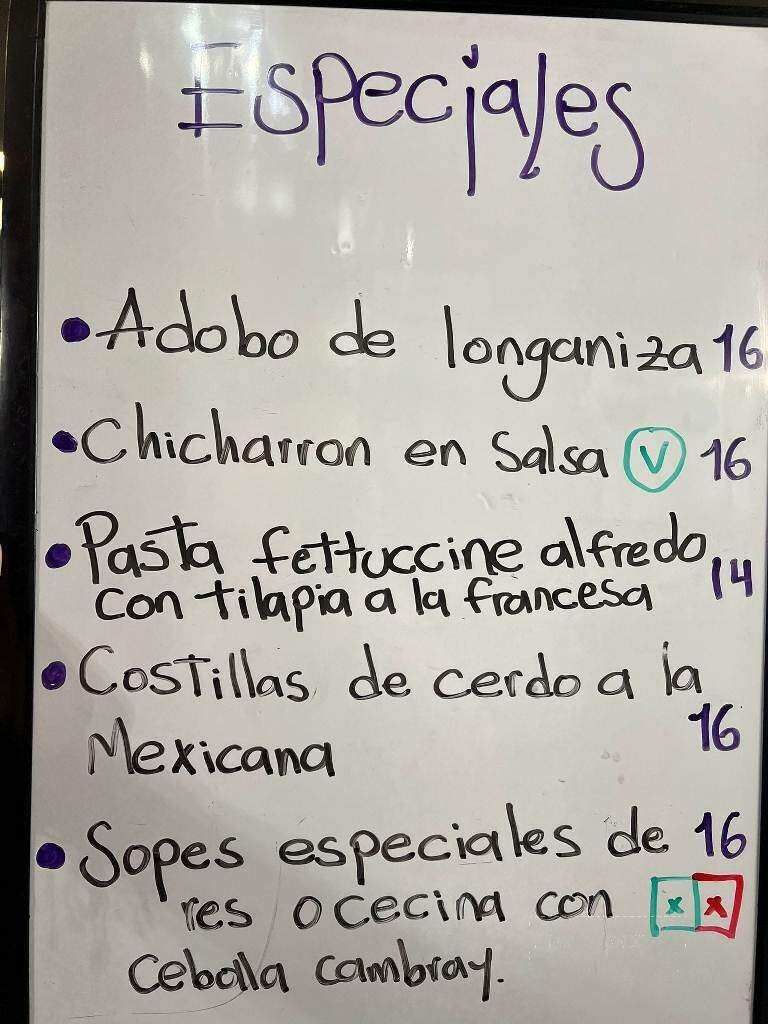 Especiales
• Adobo de longaniza 16
• Chicharron en Salsa V 16
• Pasta fettuccine alfredo
con tilapia a la francesa 14
• Costillas de cerdo a la
Mexicana 16
• Sopes especiales de 16
res o cecina con x x
cebolla cambray.